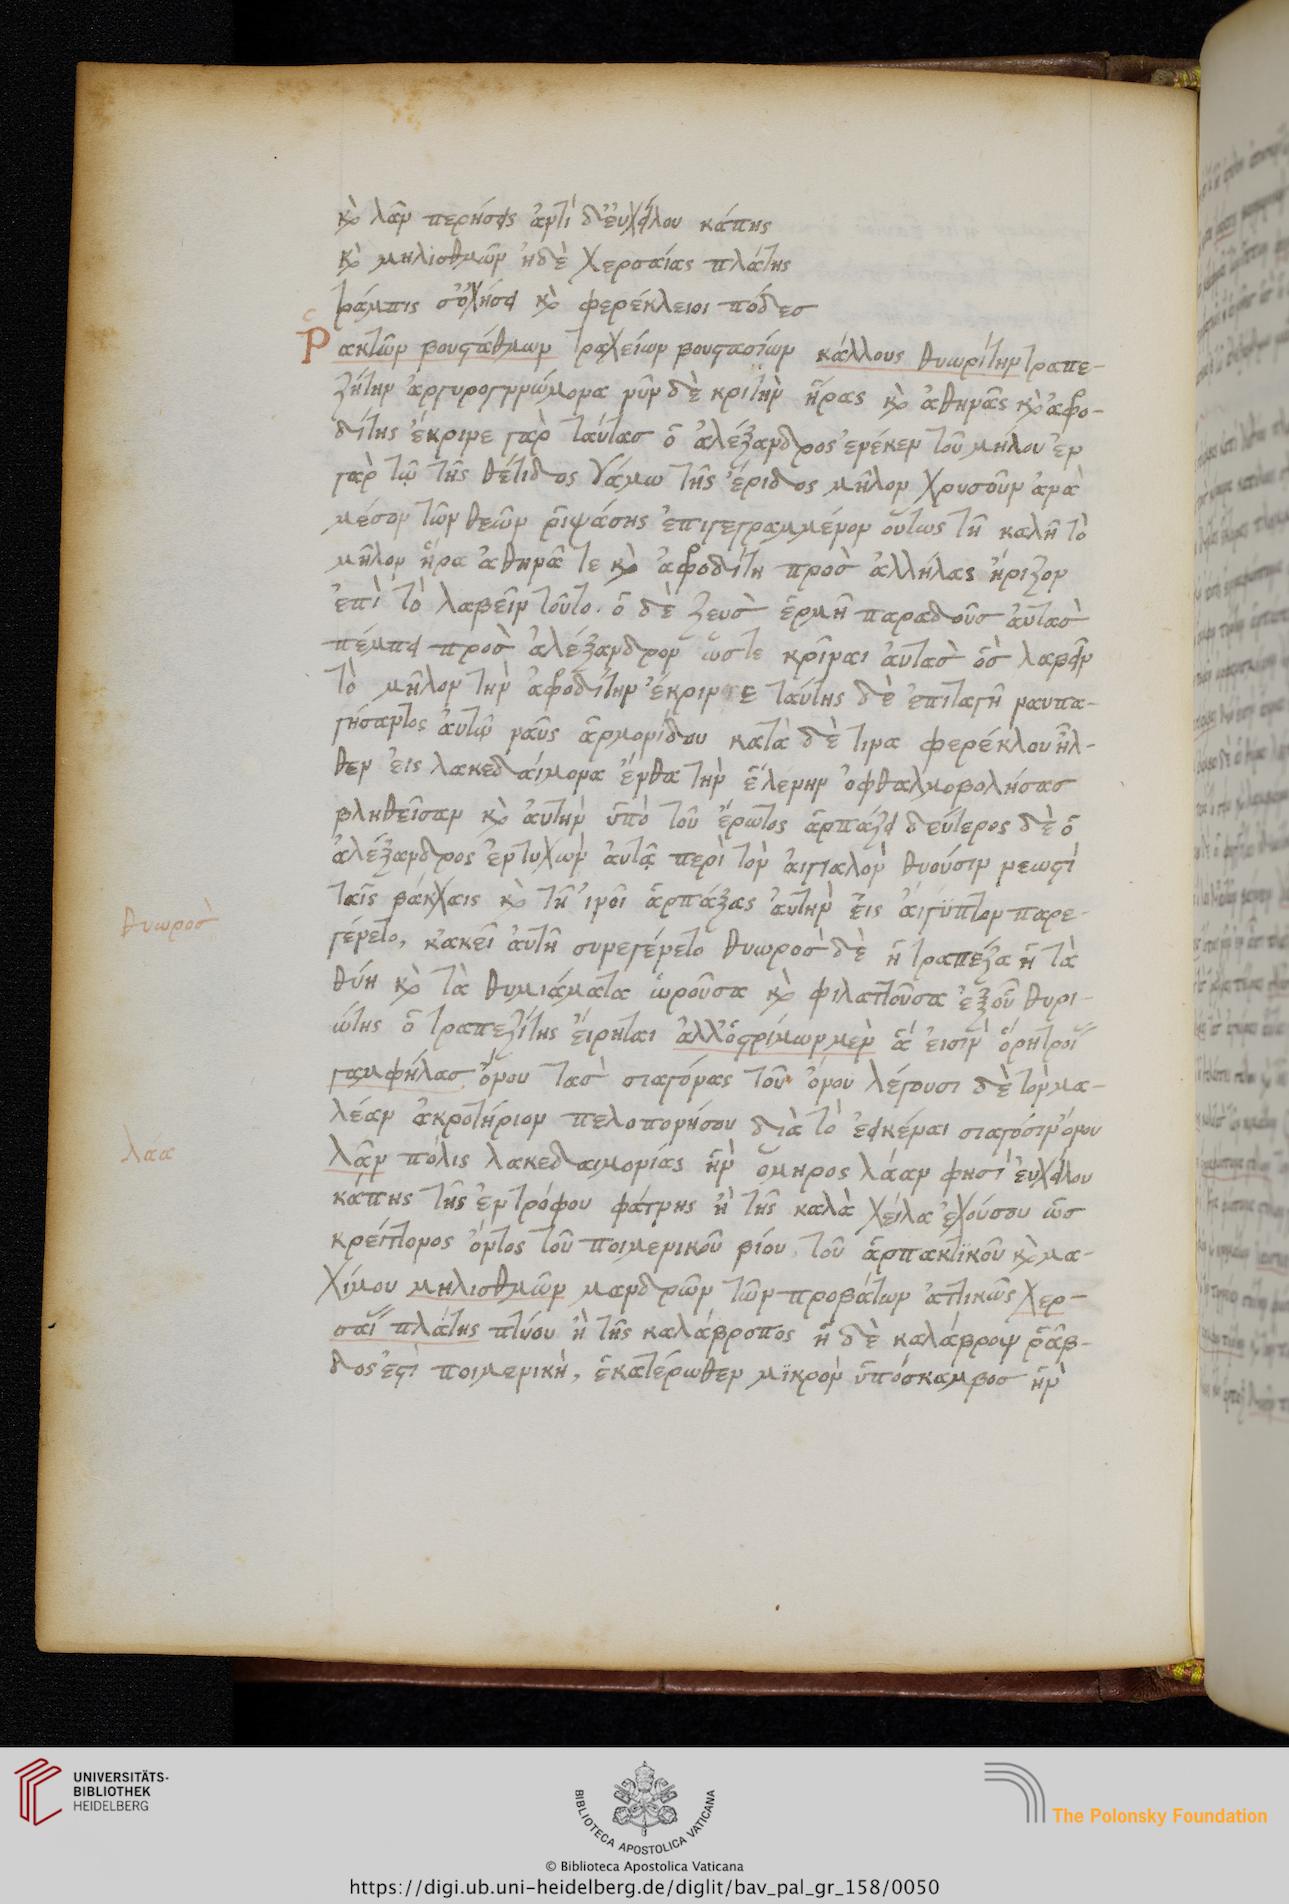 κὶ λᾶν περήσεις ἀντὶ δ' εὐχείλου κάπης
κὶ μηλιαθμῶν ἠδὲ χερσαίας πλάτης
τράμπις σ' ὀχήσει κὶ φερέκλειοι πόδες
Ῥακτῶν βουστάθμων τραχείων βουστασίων κάλλους θυωρίτην τραπε-
ζήτην ἀργυρογνώμονα νῦν δὲ κριτὴν ἥρας κὶ ἀθηνᾶς κὶ ἀφρο-
δίτης ἔκρινε γὰρ ταύτας ὁ ἀλέξανδρος ἕνεκεν τοῦ μήλου ἐν
γὰρ τῶ τῆς θέτιδος γάμω τῆς ἔριδος μῆλον χρυσοῦν ἀνὰ
μέσον τῶν θεῶν ῥιψάσης ἐπιγεγραμμένον οὕτως τῆ καλῆ τὸ
μῆλον ἥρα ἀθηνᾶ τε κὶ ἀφροδίτη πρὸς ἀλλήλας ἤριζον
ἐπὶ τὸ λαβεῖν τοῦτο. ὁ δὲ ζεὺς ἑρμῆ παραδοὺς αὐτὰς
πέμπει πρὸς ἀλέξανδρον ὥστε κρῖναι αὐτὰς ὃς λαβεῖν
τὸ μῆλον τὴν ἀφροδίτην ἔκρινε ταύτης δὲ ἐπιταγῆ ναυπα-
γήσαντος αὐτῶ ναῦς ἁρμονίδου κατὰ δέ τινα φερέκλου ἦλ-
θεν εἰς λακεδαίμονα ἔνθα τὴν ἑλένην ὀφθαλμοβολήσας
βληθεῖσαν κὶ αὐτὴν ὑπὸ τοῦ ἔρωτος ἁρπάζει δεύτερος δὲ ὁ
ἀλέξανδρος ἐντυχὼν αὐτᾶ περὶ τὸν αἰγιαλὸν θυούσιν νεωστὶ
ταῖς βάκχαις κὶ τῆ ἰνοῖ ἁρπάξας αὐτὴν εἰς αἴγϋπτον παρε-
γένετο, κἀκεῖ αὐτῆ συνεγένετο θυωρὸς δὲ ἡ τραπέζα ἡ τὰ
θύη κὶ τὰ θυμιάματα ὡροῦσα κὶ φιλαττοῦσα ἐξοῦ θυρι-
ώτης ὁ τραπεζίτης εἴρηται
γαμφήλας ὄνου τὰς σιαγόνας τοῦ ὄνου λέγουσι δὲ τὸν μα-
λέαν ἀκρωτήριον πελοπονήσου διὰ τὸ ἐεικέναι σιαγόσιν ὄνου
λᾶν πόλις λακεδαιμονίας ἣν ὅμηρος λάαν φησὶ εὐχείλου
κάπης τῆς ἐντρόφου φάτνης ἢ τῆς καλὰ χείλα ἐχούσου ὡς
κρείττονος ὄντος τοῦ ποιμενικοῦ βίου τοῦ ἁρπακτϊκοῦ κὶ μα-
χίμου μηλισθμῶν μανδρῶν τῶν προβάτων ἀττικῶς χερ-
σαΐ πλάτης πτύου ἢ τῆς καλάβροπος ἡ δὲ καλάβροψ ῥάβ-
δος ἐστὶ ποιμενικὴ, ἑκατέρωθεν μϊκρὸν ὑπόσκαμβος ἣν
θυωρὸς
λάα
UNIVERSITÄTS-
BIBLIOTHEK
HEIDELBERG
BIBLIOTECA APOSTOLICA VATICANA
The Polonsky Foundation
© Biblioteca Apostolica Vaticana
https://digi.ub.uni-heidelberg.de/diglit/bav_pal_gr_158/0050